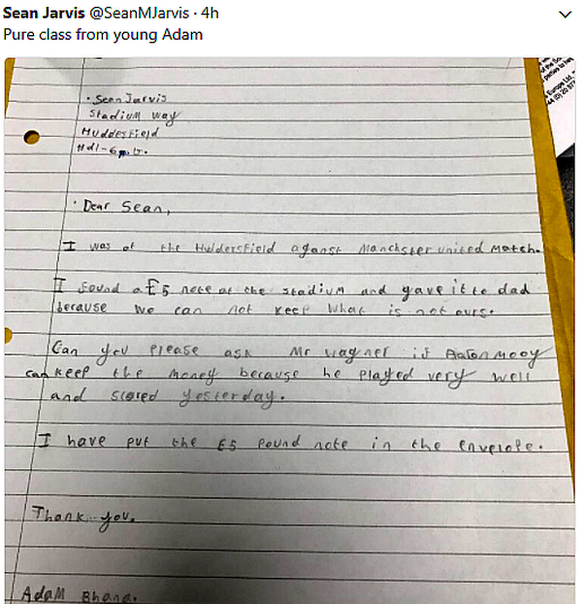 Sean Jarvis @SeanMJarvis · 4h
Pure class from young Adam
• Sean Jarvis
Stadium way
Huddesfield
Hd1-6
• Dear Sean,
I was at the Huddersfield aganst Manchster united Match.
I found a £5 note at the stadium and gave it to dad
because we can not keep what is not ours.
Can you please ask Mr wagner if Aaron mooy
can keep the money because he played very well
and scored yesterday.
I have put the £5 pound note in the envelope.
Thank you.
Adam Bhana.